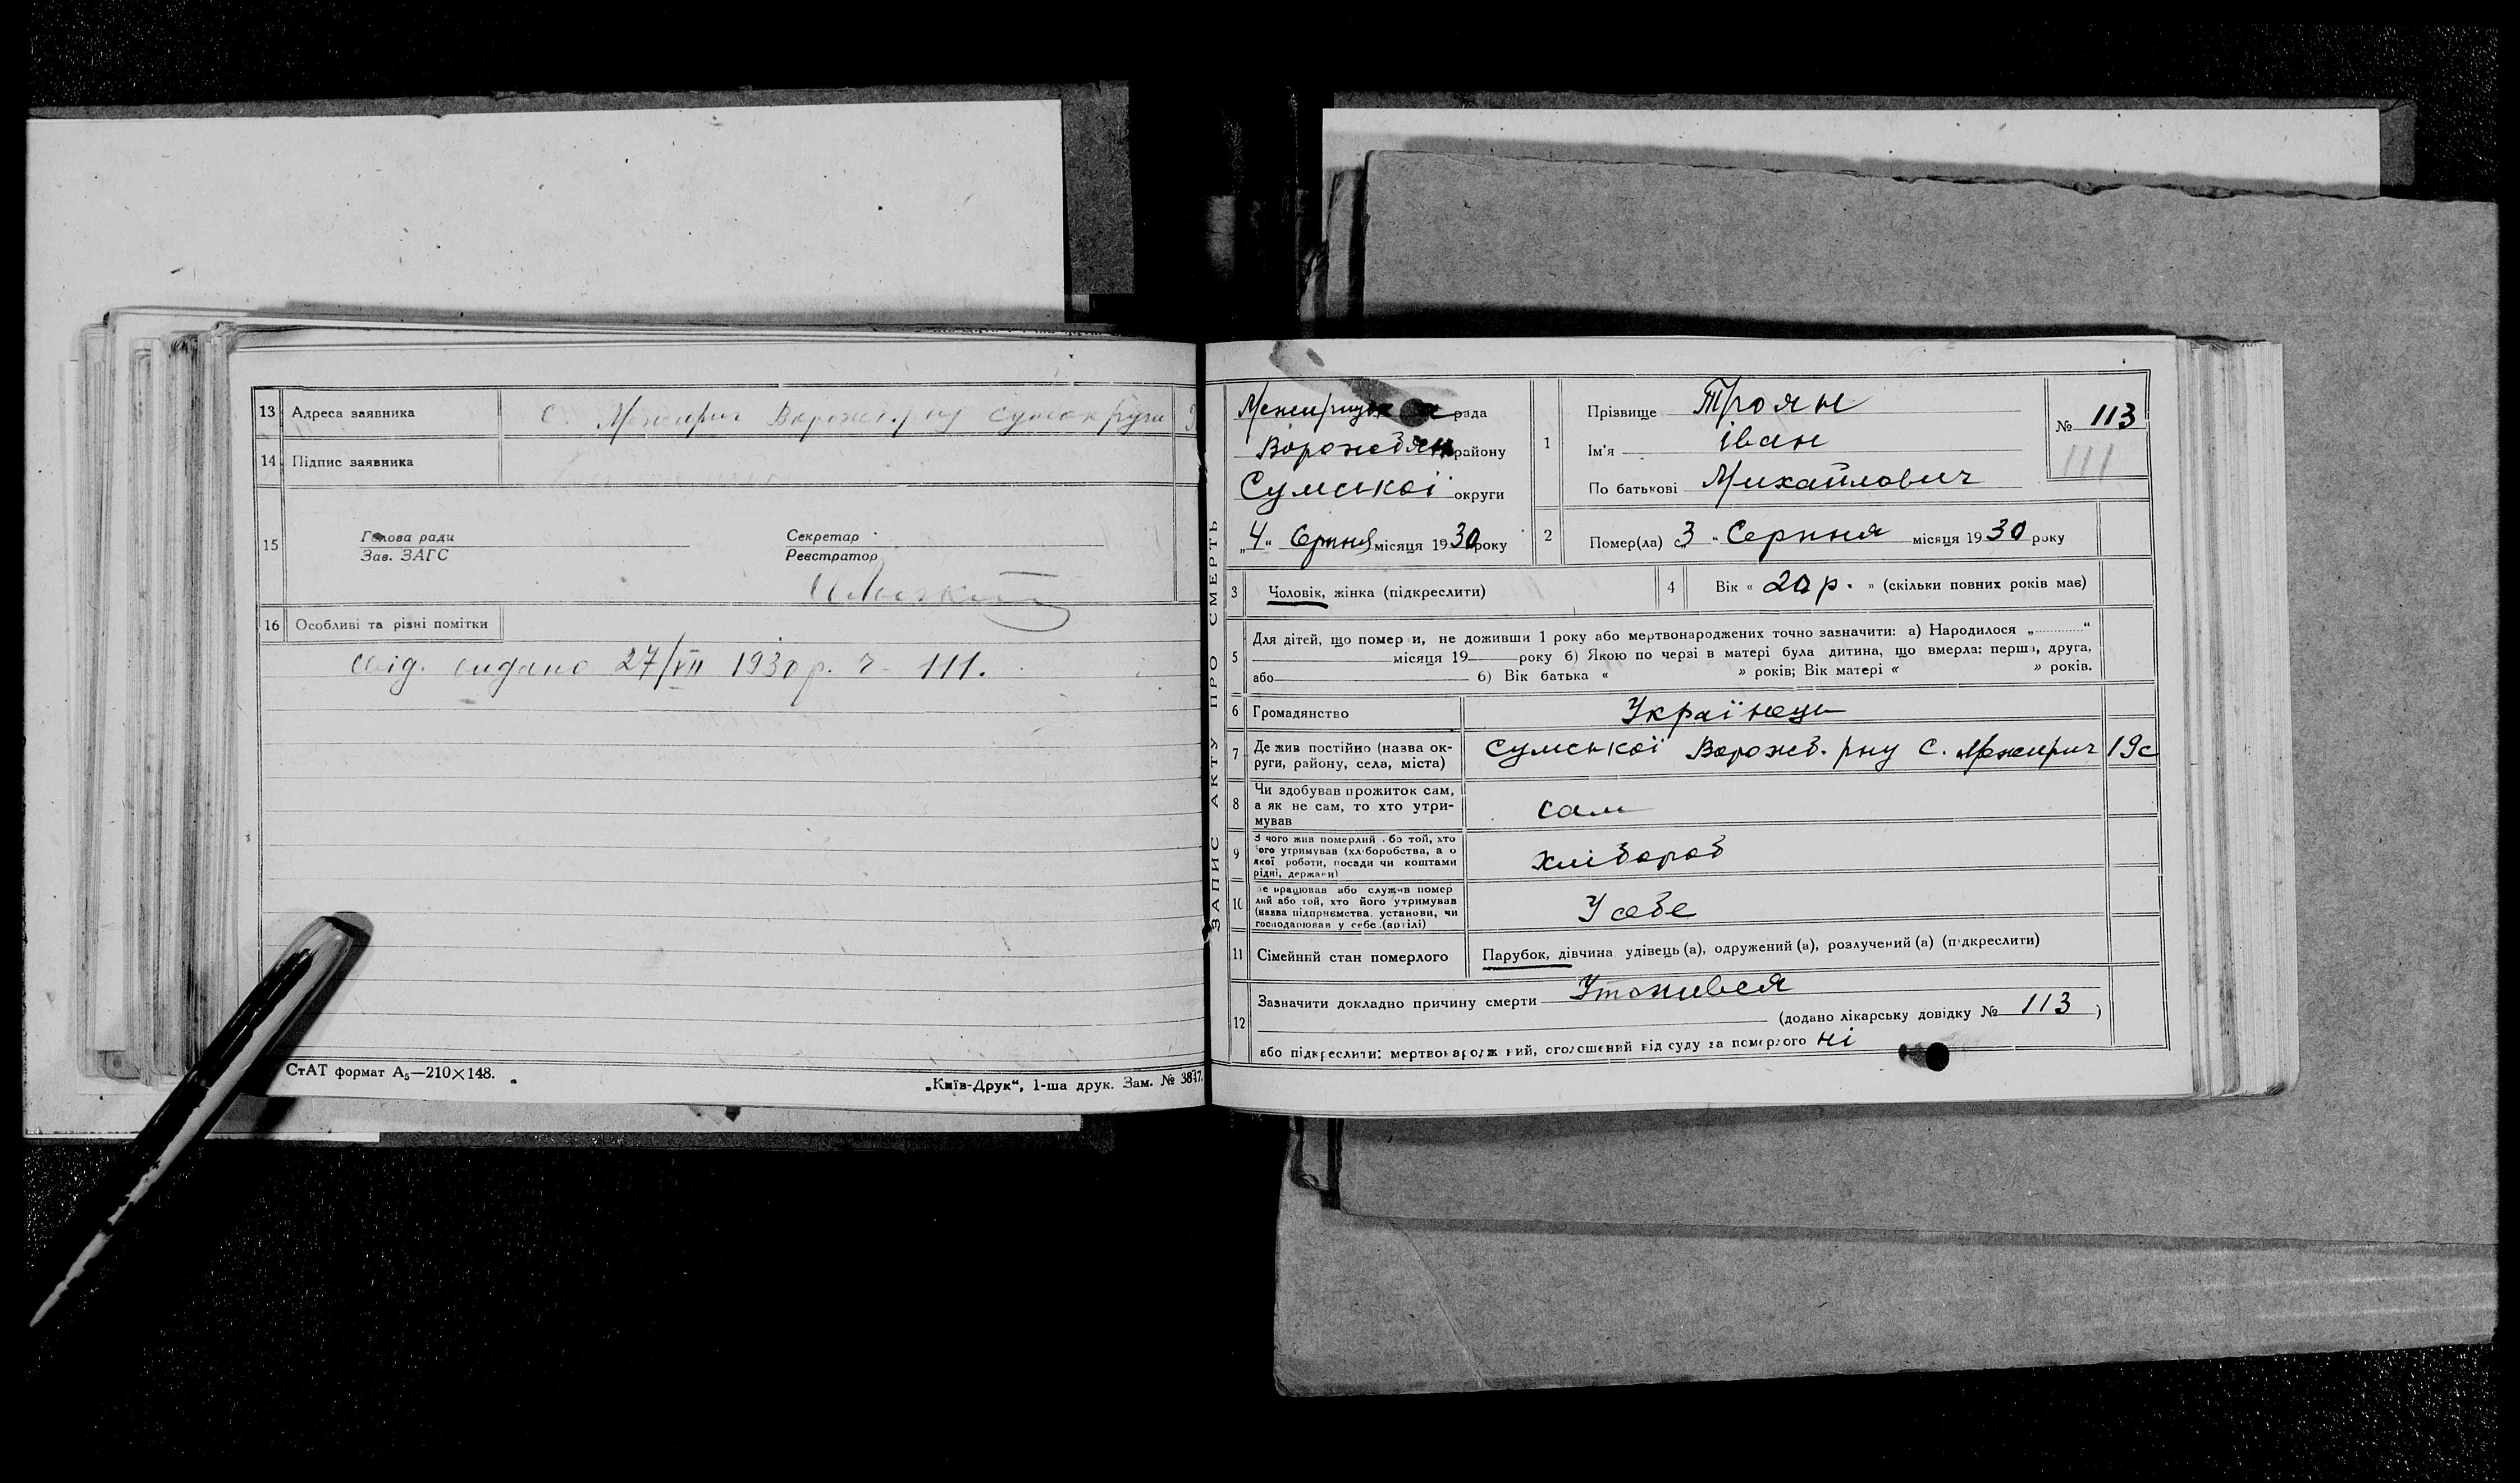 13 Адреса заявника с. Межирич Ворожб. р-ну Сумокруги
14 Підпис заявника
15 Голова ради Секретар
Зав. ЗАГС Реєстратор
16 Особливі та різні помітки
свід. видано 27/VII 1930 р. ч. 111.
СтАТ формат А₅—210×148.
„Київ-Друк“, 1-ша друк. Зам. №
ЗАПИС АКТУ ПРО СМЕРТЬ
рада
Ворожбян району
Сумської округи
„4“ Серпня місяця 1930 року
1 Прізвище Троян
Ім'я Іван
По батькові Михайлович
№ 113
111
2 Помер(ла) „3“ Серпня місяця 1930 року
3 Чоловік, жінка (підкреслити)
4 Вік « 20 р. » (скільки повних років має)
5 Для дітей, що помер и, не доживши 1 року або мертвонароджених точно зазначити: а) Народилося „ “
місяця 19 року б) Якою по черзі в матері була дитина, що вмерла: перша, друга,
або б) Вік батька « » років; Вік матері « » років.
6 Громадянство Українець
7 Де жив постійно (назва ок-
руги, району, села, міста) Сумської Ворожб. рну с. Межирич 19с
8 Чи здобував прожиток сам,
а як не сам, то хто утри-
мував сам
9 З чого жив померлий або той, хто
його утримував (хліборобства, а о
якої роботи, посади чи коштами
рідні, держави) хлібороб
10 де працював або служив помер
лий або той, хто його утримував
(назва підприємства, установи, чи
господарював у себе (артілі) У себе
11 Сімейний стан померлого Парубок, дівчина удівець (а), одружений (а), розлучений (а) (підкреслити)
12 Зазначити докладно причину смерти Утопився
(додано лікарську довідку № 113 )
або підкреслити: мертвонароджений, оголошений від суду за померлого ні